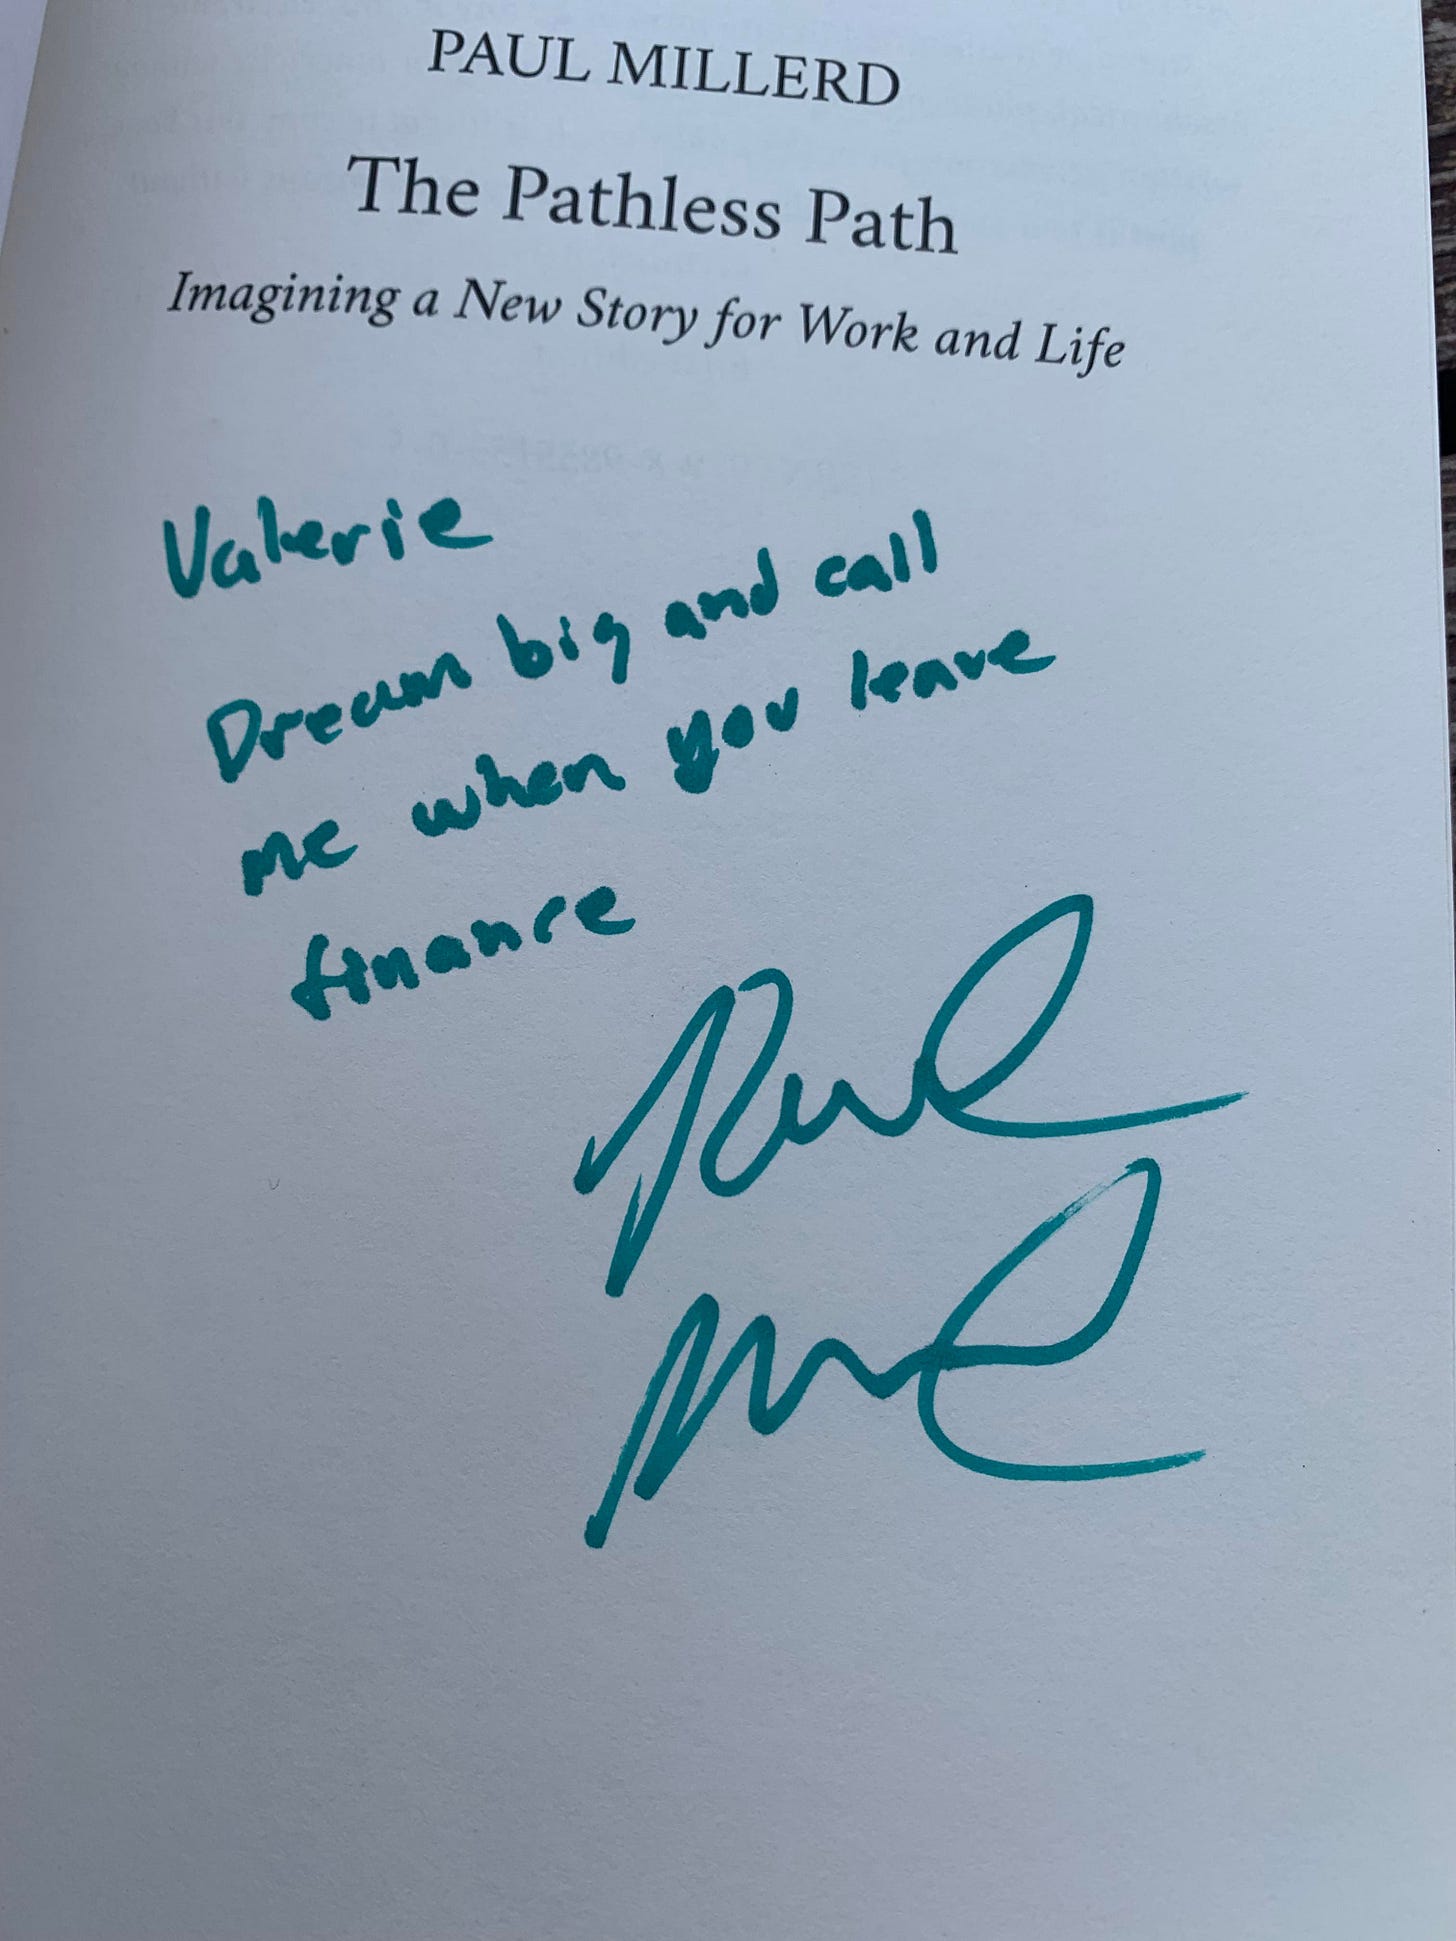 PAUL MILLERD
The Pathless Path
Imagining a New Story for Work and Life
Valerie
Dream big and call
me when you leave
finance
Paul